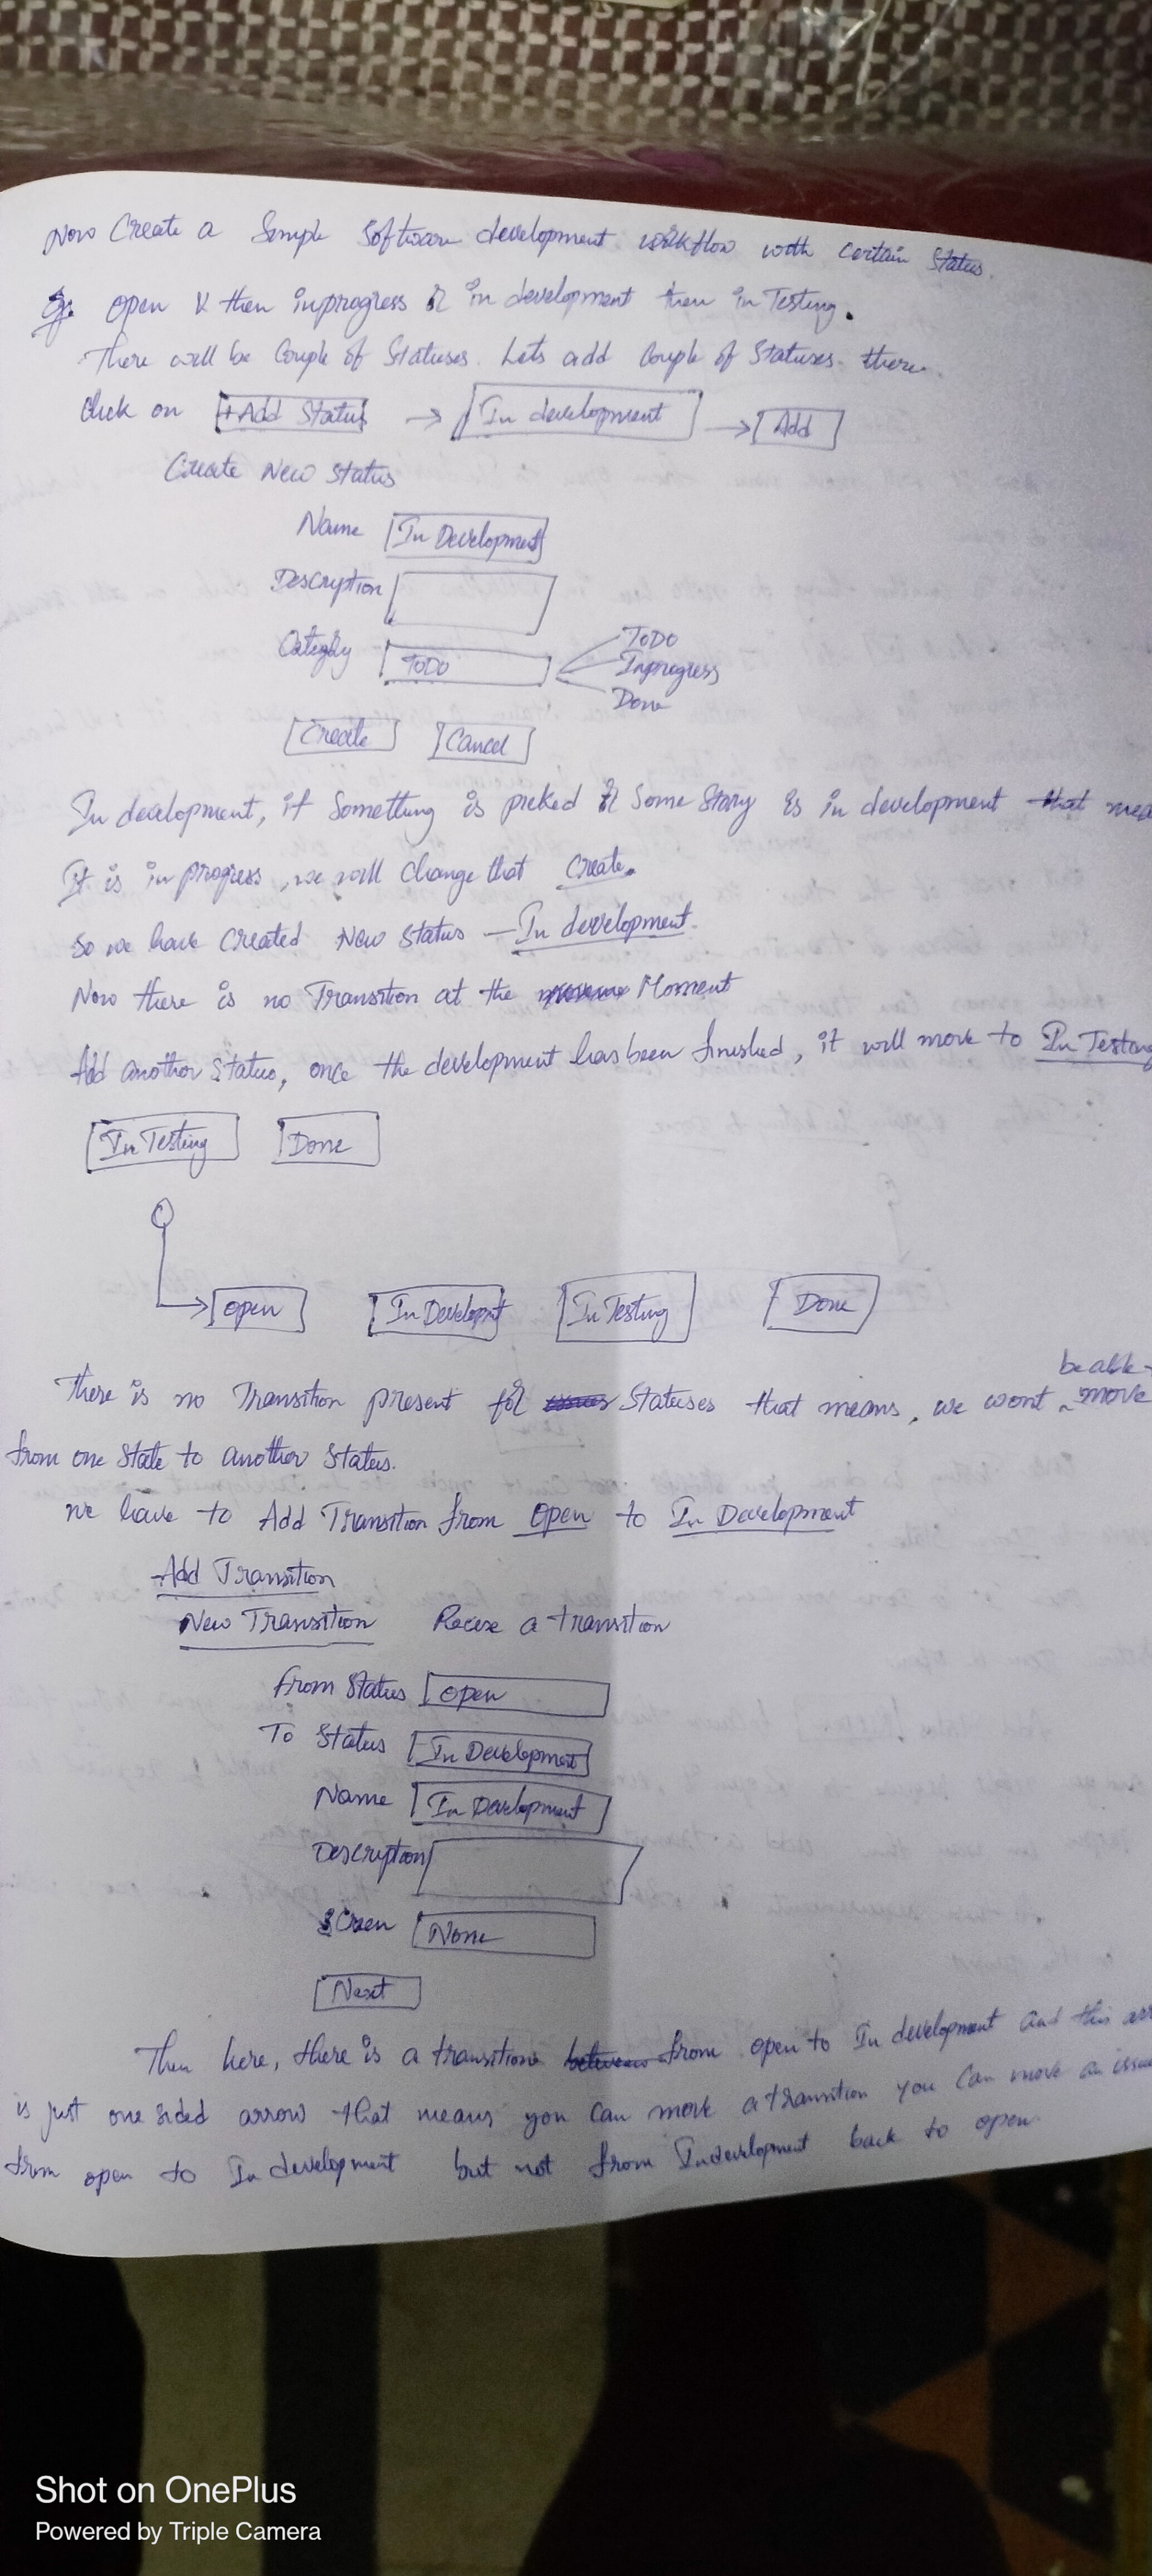 Now Create a Simple Software development workflow with certain Status.
Eg: open & then inprogress or in development then in Testing.
There will be Couple of Statuses. Lets add Couple of Statuses there.
Click on +Add Status → In development → Add
Create New Status
Name In Development
Description
Category ToDo
ToDo
Inprogress
Done
Create Cancel
In development, if Something is picked or Some Story is in development that
It is in progress, we will change that Create.
So we have Created New Status — In development.
Now there is no Transition at the Moment
Add another Status, once the development has been finished, it will move to In Testing
In Testing Done
open In Developmt In Testing Done
There is no Transition present for Statuses that means, we wont be able move
from one State to another Status.
we have to Add Transition from Open to In Development
Add Transition
New Transition Reuse a transition
From Status open
To Status In Development
Name In Development
Description
Screen None
Next
Then here, there is a transition from open to In development and this
is just one sided arrow that means you can move a transition you can move an
from open to In development but not from Indevelopment back to open
Shot on OnePlus
Powered by Triple Camera